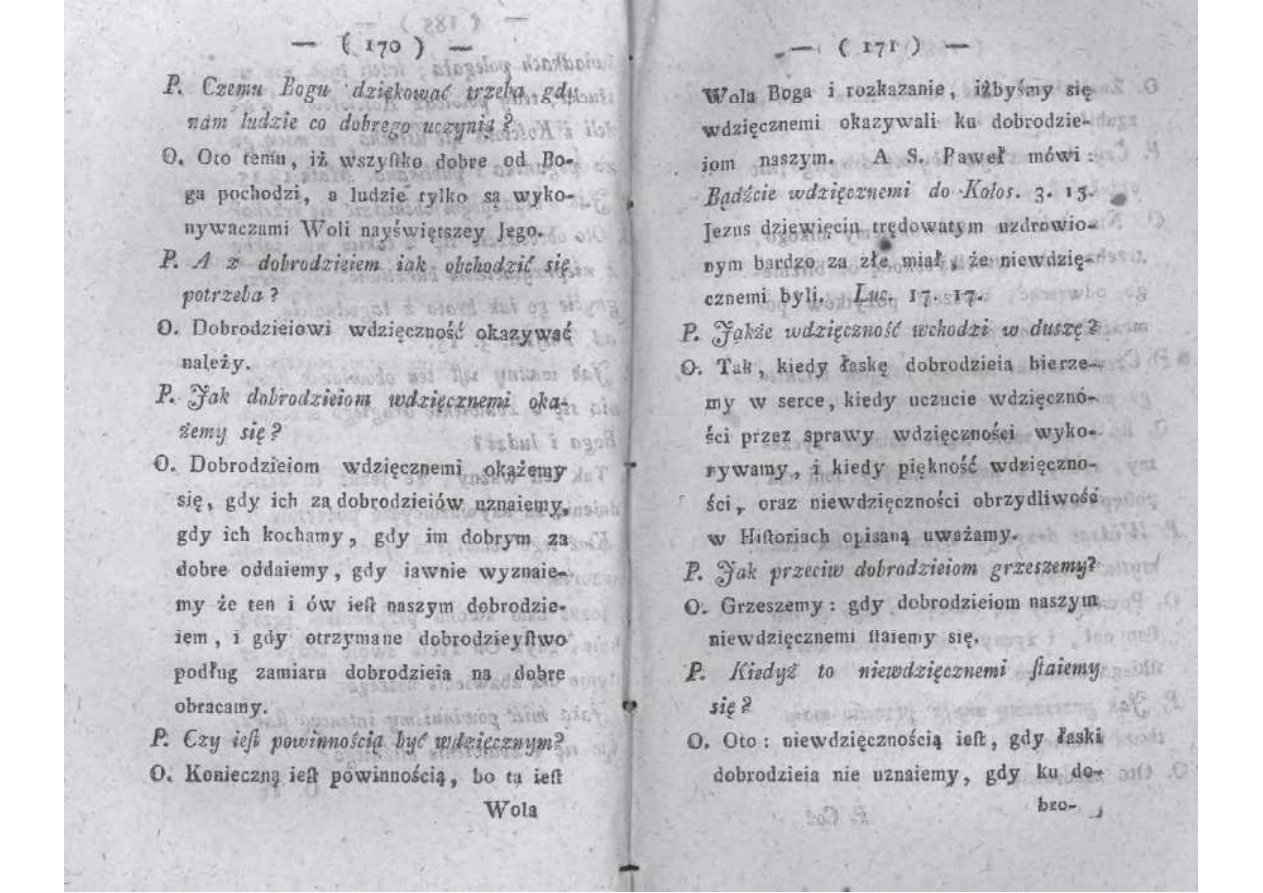 — ( 170 ) —
P. Czemu Bogu dziękować trzeba, gdy
nam ludzie co dobrego uczynią?
O. Oto temu, iż wszyſtko dobre od Bo-
ga pochodzi, a ludzie tylko są wyko-
nywaczami Woli nayświętszey Jego.
P. A z dobrodzieiem iak obchodzić się
potrzeba?
O. Dobrodzieiowi wdzięczność okazywać
należy.
P. Jak dobrodzieiom wdzięcznemi oka-
żemy się?
O. Dobrodzieiom wdzięcznemi okażemy
się, gdy ich za dobrodzieiów uznaiemy,
gdy ich kochamy, gdy im dobrym za
dobre oddaiemy, gdy iawnie wyznaie-
my że ten i ów ieſt naszym dobrodzie-
iem, i gdy otrzymane dobrodzieyſtwo
podług zamiaru dobrodzieia na dobre
obracamy.
P. Czy ieſt powinnością być wdzięcznym?
O. Konieczną ieſt powinnością, bo ta ieſt
Wola
— ( 171 ) —
Wola Boga i rozkazanie, iżbyśmy się
wdzięcznemi okazywali ku dobrodzie-
iom naszym. A S. Paweł mówi:
Bądźcie wdzięcznemi do Kolos. 3. 13.
Jezus dziewięciu trędowatym uzdrowio-
nym bardzo za złe miał, że niewdzię-
cznemi byli. Luc. 17. 17.
P. Jakże wdzięczność wchodzi w duszę?
O. Tak, kiedy łaskę dobrodzieia bierze-
my w serce, kiedy uczucie wdzięczno-
ści przez sprawy wdzięczności wyko-
nywamy, i kiedy piękność wdzięczno-
ści, oraz niewdzięczności obrzydliwość
w Hiſtoriach opisaną uważamy.
P. Jak przeciw dobrodzieiom grzeszemy?
O. Grzeszemy: gdy dobrodzieiom naszym
niewdzięcznemi ſtaiemy się.
P. Kiedyż to niewdzięcznemi ſtaiemy
się?
O. Oto: niewdzięcznością ieſt, gdy łaski
dobrodzieia nie uznaiemy, gdy ku do-
bro-